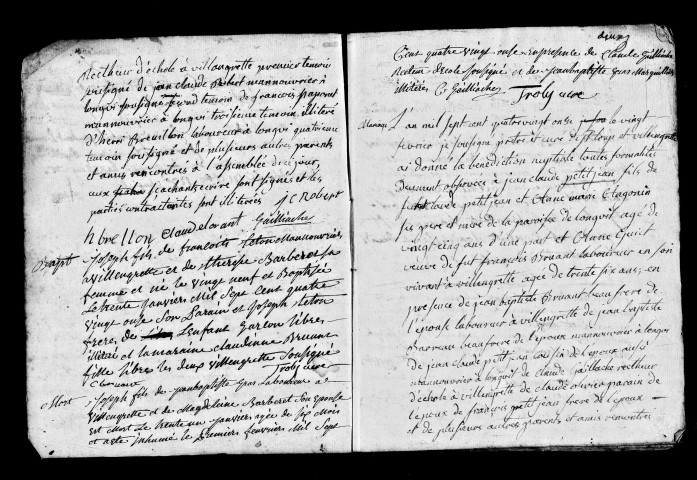 Recteur d'echole a villangrette premier temoin
soussigné de jean claude Robert mannouvrier à
longvi soussigné second temoin de françois
mannouvrier à longvi troisieme temoin illiteré
d'henri Breuillon laboureur à longvi quatrieme
temoin soussigné et de plusieurs autres parents
et amis rencontrés à l'assemblée de ce jour,
ceux scachant ecrire sont signés et les
parties contractantes sont illiterées J C Robert
h brellon claude lorant Gaillache
Bapt joseph fils de francois leton Mannouvrier
a Villengrette et de therese Barberet sa
femme et né le vingt neuf et Baptisé
Le trente janvier Mil Sept Cent quatre
vingt onse Son Parain et joseph leton
frere de L'enfant garcon libre
illiteré et la maraine claudenne Brunne
fille libre les deux villengrette Soussigné
Troly curé
Mort joseph fils de jeanbaptiste gros Laboureur a
villengrette et de Magdeleine Barberet Son epouse
est Mort Le trente un janvier agée de six Mois
et a ete inhumé le Premiers fevriers Mil Sept
Cens quatre vingt onse en presence de Claude Gaillache
Recteur d'ecole soussigné et de jeanbaptiste gros Marguillier
illiteres C. Gaillache
Troly curé
Mariage L'an mil sept cent quatre vingt onse le vingt
fevrier je soussigné prêtre et curé de et villengrette
ai donné la benediction nuptiale toutes formalités
Deument observées à jean claude petit jean fils de
fut claude petit jean et Anne marie Etagonin
ses pere et mere de la paroisse de longvit agé de
vingt cinq ans d'une part et Anne
veuve de fut françois Bruant laboureur en son
vivant à villengrette agée de trente six ans; en
presence de jean baptiste Bruant beaufrere de
l'epouse laboureur à villengrette de jean baptiste
beaufrere de l'epoux mannouvrier à longvi
de jean claude petit jean cousin de l'epoux aussi
mannouvrier à longvit de claude Gaillache recteur
d'echole à villengrette de claude olivier parain de
l'epoux de françois petit jean frere de l'epoux
et de plusieurs autres parents et amis rencontrés